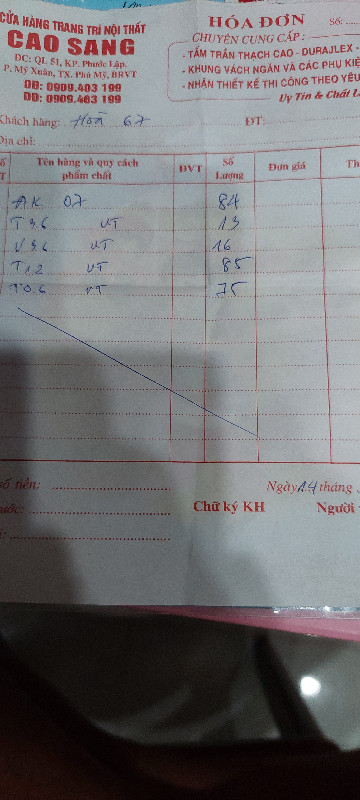 CỬA HÀNG TRANG TRÍ NỘI THẤT
CAO SANG
ĐC: QL 51, KP. Phước Lập.
P. Mỹ Xuân, TX. Phú Mỹ, BRVT
DĐ: 0909.403 199
DĐ: 0909.463 199
HÓA ĐƠN Số:
CHUYÊN CUNG CẤP :
- TẤM TRẦN THẠCH CAO - DURAJLEX -
- KHUNG VÁCH NGĂN VÀ CÁC PHỤ KIỆ
- NHẬN THIẾT KẾ THI CÔNG THEO YÊU
Uy Tín & Chất L
Khách hàng: Hoà 67 ĐT:
Địa chỉ:
Tên hàng và quy cách phẩm chất ĐVT Số Lượng Đơn giá Th
AK 07 84
T 3.6 VT 13
V 3.6 VT 16
T 1.2 VT 85
T 0.6 VT 75
số tiền:
Ngày 14 tháng
ước: Chữ ký KH Người